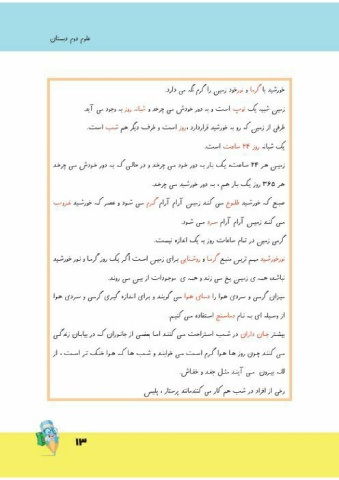 علوم دوم دبستان
خورشید با گرما و نورخود زمین را گرم نگه می دارد.
زمین شبیه یک توپ است و به دور خودش می چرخد و شبانه روز به وجود می آید.
طرفی از زمین که رو به خورشید قراردارد ،روز است و طرف دیگر هم شب است.
یک شبانه روز ۲۴ ساعت است.
زمین هر ۲۴ ساعت، یک بار به دور خود می چرخد و در حالی که به دور خودش می چرخد
هر ۳۶۵ روز یک بار هم ، به دور خورشید می چرخد.
صبح که خورشید طلوع می کند زمین آرام آرام گرم می شود و عصر که خورشید غروب
می کند زمین آرام آرام سرد می شود.
گرمی زمین در تمام ساعات روز به یک اندازه نیست.
نورخورشید مهم ترین منبع گرما و روشنایی برای زمین است، اگر یک روز گرما و نور خورشید
نباشد، همه ی زمین یخ می زند و همه ی موجودات از بین می روند.
میزان گرمی و سردی هوا را دمای هوا می گویند و برای اندازه گیری گرمی و سردی هوا
از وسیله ای به نام دماسنج استفاده می کنیم.
بیشتر جان داران در شب استراحت می کنند اما بعضی از جانوران که در بیابان زندگی
می کنند چون روز ها هوا گرم است می خوابند و شب ها که هوا خنک تر است ، از
لانه بیرون می آیند مثل جغد و خفاش.
برخی از افراد در شب هم کار می کنندمانند پرستار ، پلیس
۱۳